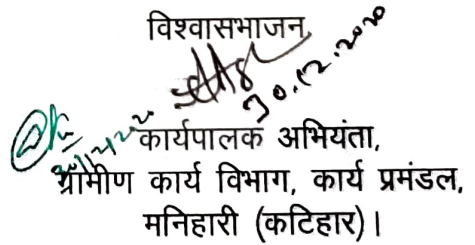 विश्वासभाजन
30.12.2020
कार्यपालक अभियंता,
ग्रामीण कार्य विभाग, कार्य प्रमंडल,
मनिहारी (कटिहार)।